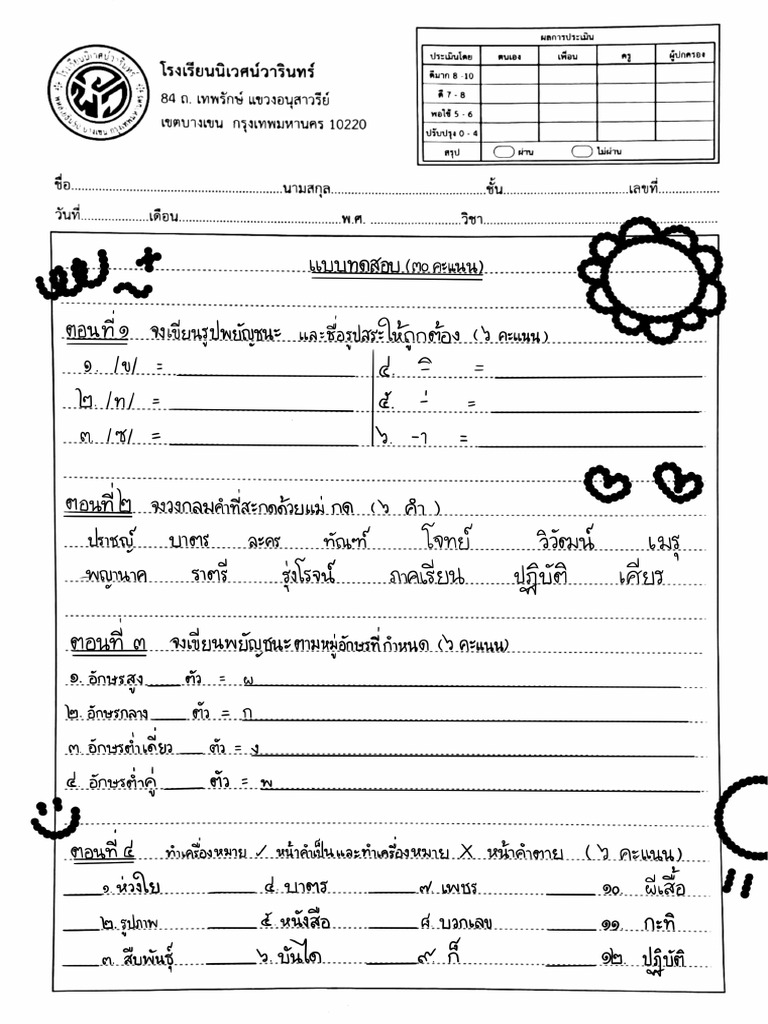 โรงเรียนนิเวศน์วารินทร์
84 ถ. เทพรักษ์ แขวงอนุสาวรีย์
เขตบางเขน กรุงเทพมหานคร 10220
ผลการประเมิน
ประเมินโดย ตนเอง เพื่อน ครู ผู้ปกครอง
ดีมาก 8 -10
ดี 7 - 8
พอใช้ 5 - 6
ปรับปรุง 0 - 4
สรุป ผ่าน ไม่ผ่าน
ชื่อ นามสกุล ชั้น เลขที่
วันที่ เดือน พ.ศ. วิชา
แบบทดสอบ (๓๐ คะแนน)
ตอนที่ ๑ จงเขียนรูปพยัญชนะ และชื่อรูปสระให้ถูกต้อง (๖ คะแนน)
๑. /ข/ = ๔. -ิ =
๒. /ท/ = ๕. -่ =
๓. /ซ/ = ๖. -า =
ตอนที่ ๒ จงวงกลมคำที่สะกดด้วยแม่ กด (๖ คำ)
ปราชญ์ บาตร ละคร ทัณฑ์ โจทย์ วิวัฒน์ เมรุ
พญานาค ราตรี รุ่งโรจน์ ภาคเรียน ปฏิบัติ เศียร
ตอนที่ ๓ จงเขียนพยัญชนะตามหมู่อักษรที่กำหนด (๖ คะแนน)
๑. อักษรสูง ____ ตัว = ผ
๒. อักษรกลาง ____ ตัว = ก
๓. อักษรต่ำเดี่ยว ____ ตัว = ง
๔. อักษรต่ำคู่ ____ ตัว = พ
ตอนที่ ๔ ทำเครื่องหมาย / หน้าคำเป็นและทำเครื่องหมาย X หน้าคำตาย (๖ คะแนน)
____๑. ห่วงใย ____๔. บาตร ____๗. เพชร ____๑๐. ผีเสื้อ
____๒. รูปภาพ ____๕. หนังสือ ____๘. บวกเลข ____๑๑. กะทิ
____๓. สืบพันธุ์ ____๖. บันได ____๙. ก็ ____๑๒. ปฏิบัติ